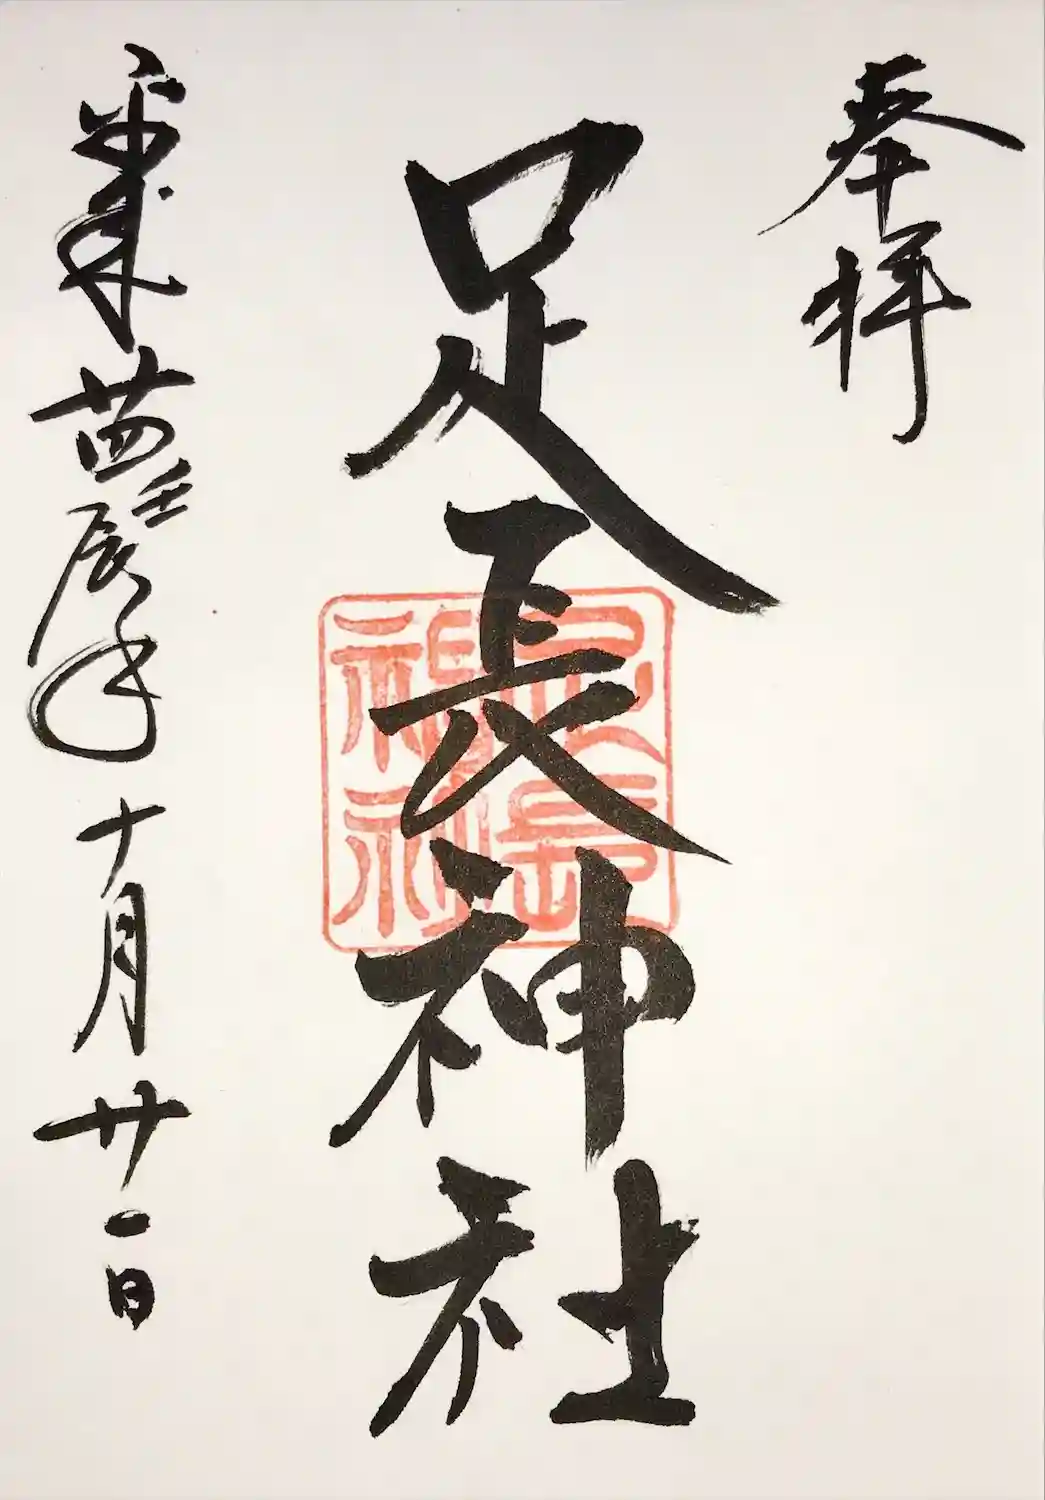 奉拝
足長神社
足長
神社
平成廿四壬辰年十月廿一日